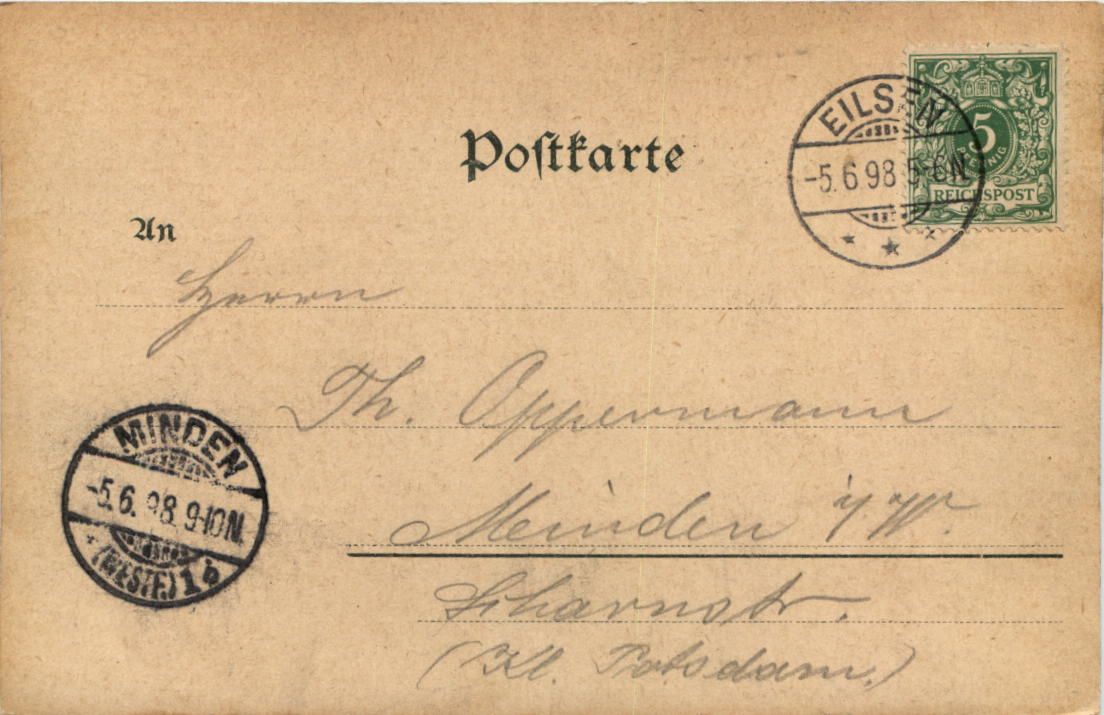 Postkarte
EILSEN
-5.6.98 5-6N.
5
PFENNIG
REICHSPOST
An
Herrn
Th. Oppermann
Minden i/W.
Scharnstr.
(Kl. Potsdam.)
MINDEN
-5.6.98.9-10N.
(WESTF.) 1